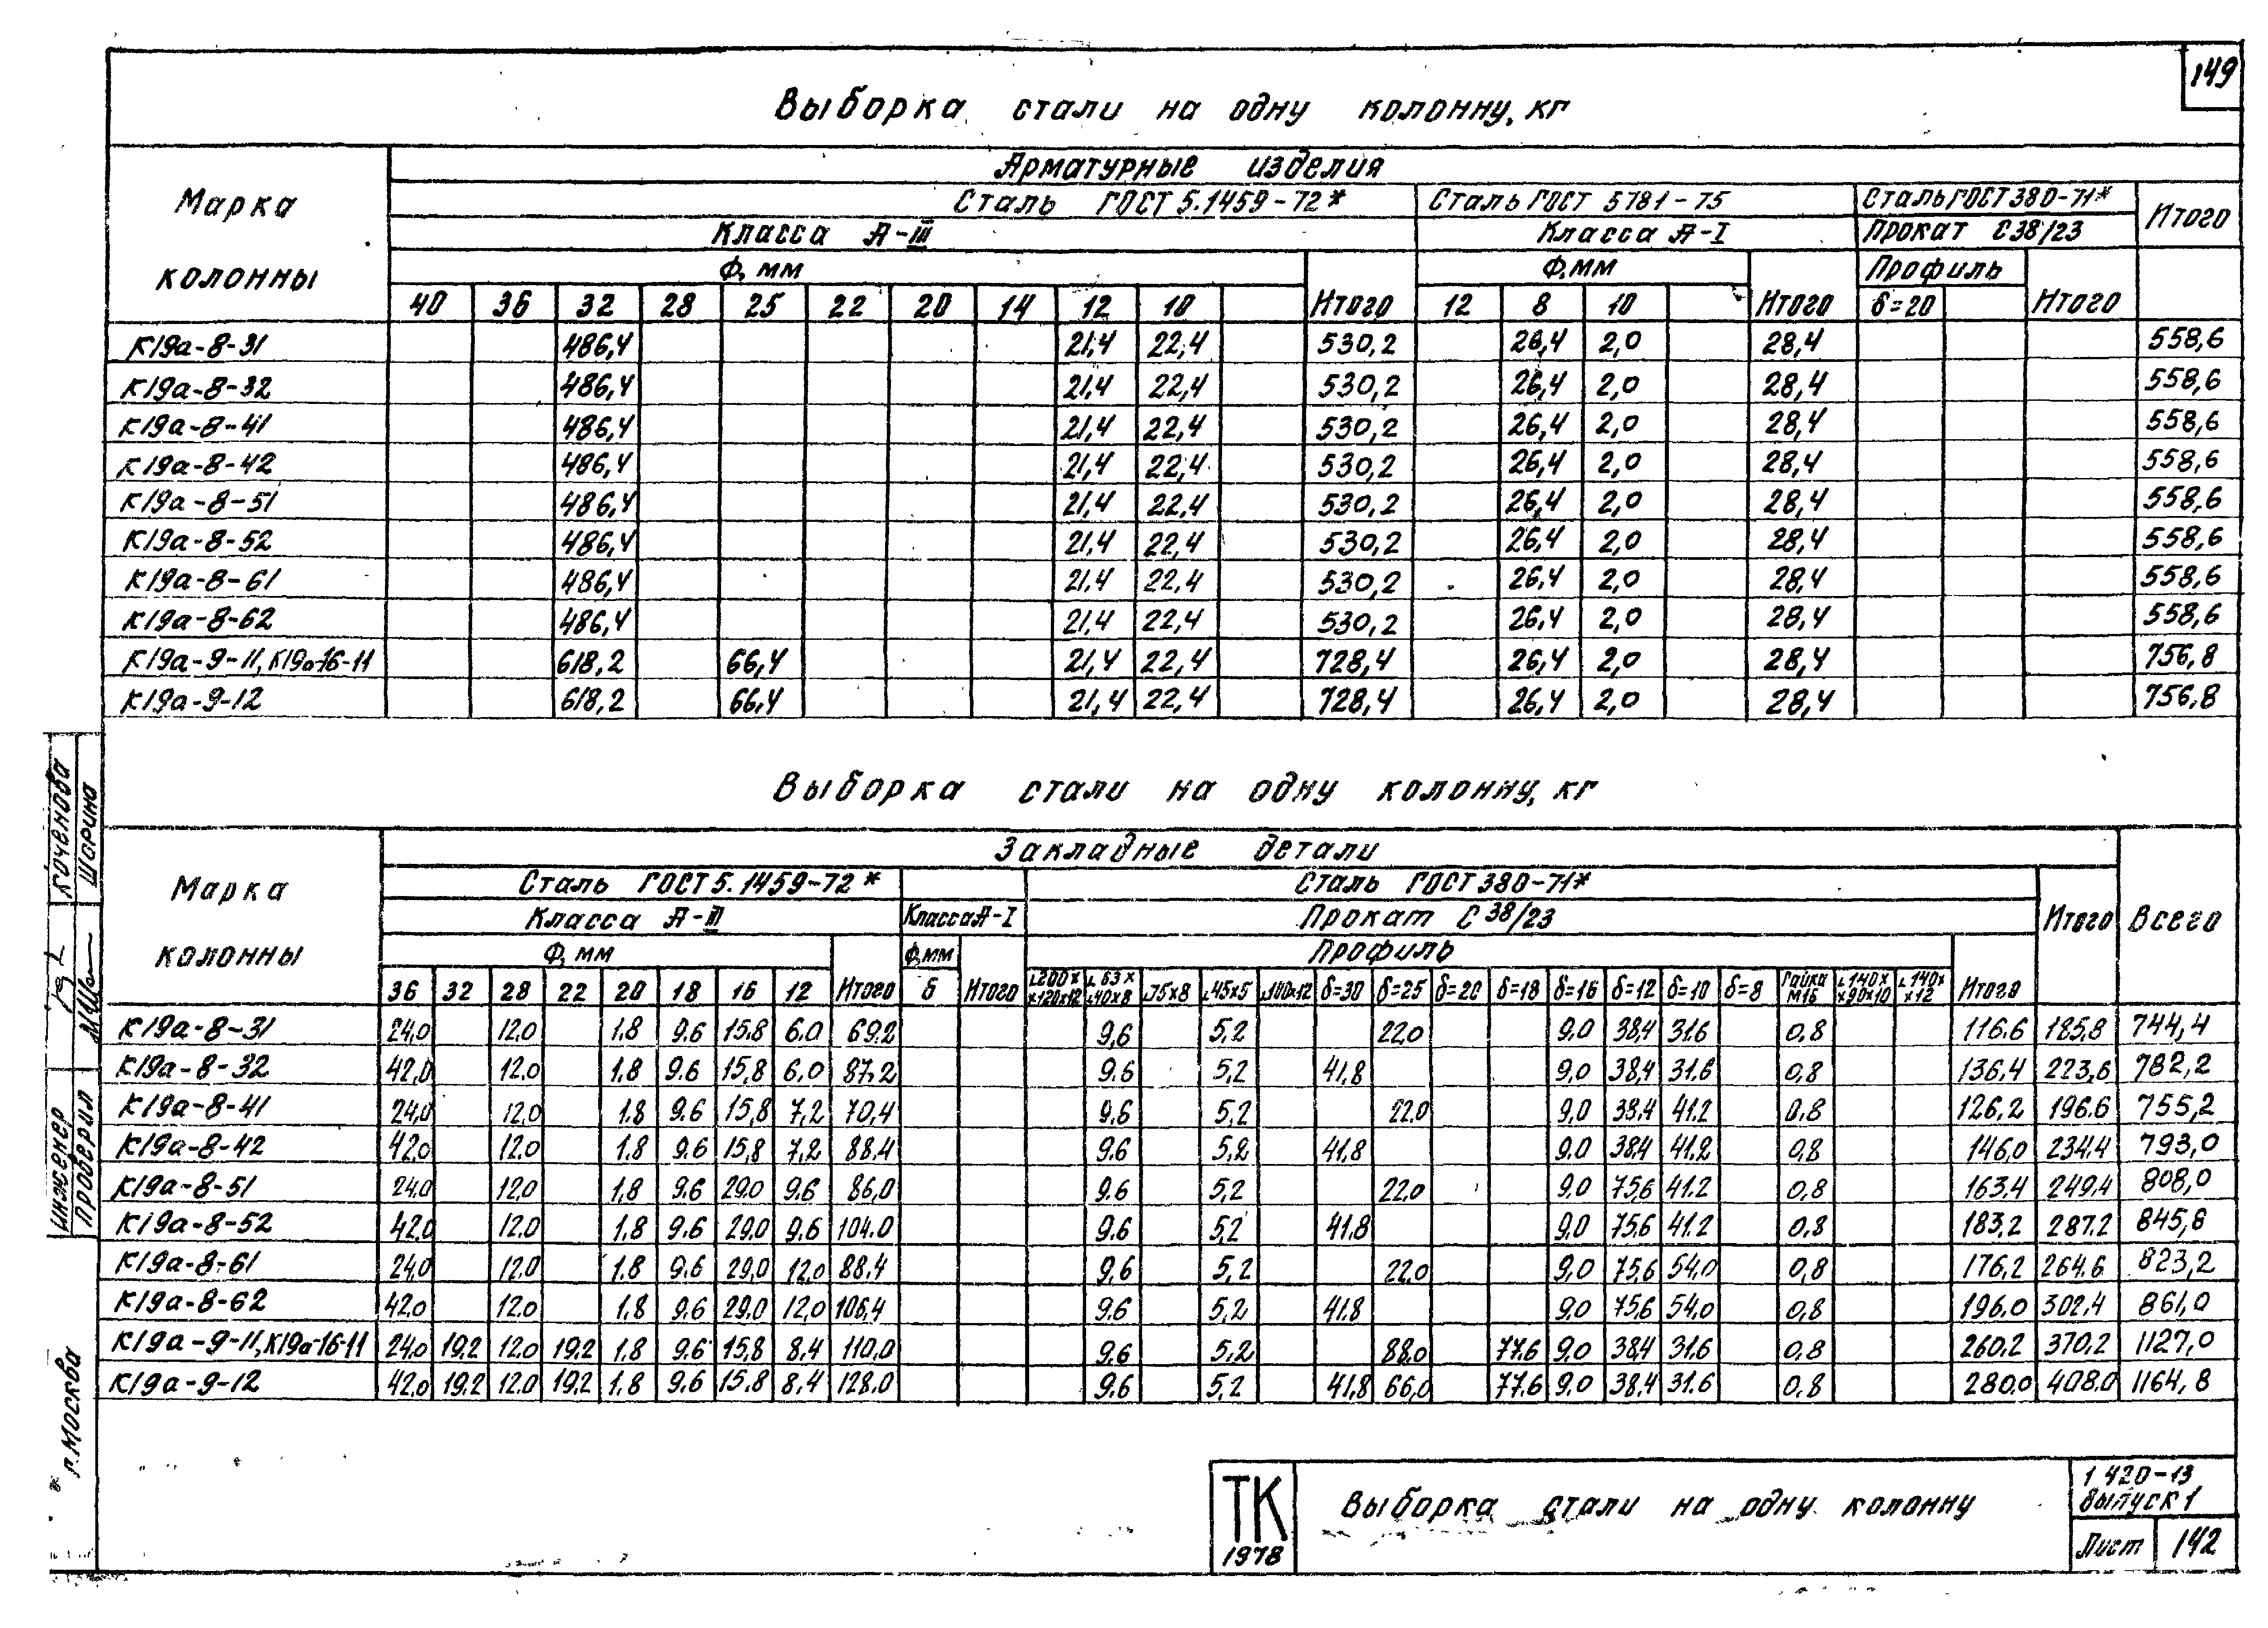 149
Выборка стали на одну колонну, кг
Марка колонны
Арматурные изделия
Сталь ГОСТ 5.1459-72* Сталь ГОСТ 5781-75 Сталь ГОСТ 380-71* Итого
Класса А-III Класса А-I Прокат С38/23
Ф, мм Ф, мм Профиль
40 36 32 28 25 22 20 14 12 10 Итого 12 8 10 Итого δ=20 Итого
К19а-8-31 486,4 21,4 22,4 530,2 26,4 2,0 28,4 558,6
К19а-8-32 486,4 21,4 22,4 530,2 26,4 2,0 28,4 558,6
К19а-8-41 486,4 21,4 22,4 530,2 26,4 2,0 28,4 558,6
К19а-8-42 486,4 21,4 22,4 530,2 26,4 2,0 28,4 558,6
К19а-8-51 486,4 21,4 22,4 530,2 26,4 2,0 28,4 558,6
К19а-8-52 486,4 21,4 22,4 530,2 26,4 2,0 28,4 558,6
К19а-8-61 486,4 21,4 22,4 530,2 26,4 2,0 28,4 558,6
К19а-8-62 486,4 21,4 22,4 530,2 26,4 2,0 28,4 558,6
К19а-9-11, К19а-16-11 618,2 66,4 21,4 22,4 728,4 26,4 2,0 28,4 756,8
К19а-9-12 618,2 66,4 21,4 22,4 728,4 26,4 2,0 28,4 756,8
Выборка стали на одну колонну, кг
Марка колонны
Закладные детали
Сталь ГОСТ 5.1459-72* Сталь ГОСТ 380-71*
Класса А-III Класса А-I Прокат С 38/23 Итого Всего
Ф, мм Ф, мм Профиль
36 32 28 22 20 18 16 12 Итого 6 Итого ∟200××120×12 ∟63××40×8 ∟75×8 ∟45×5 ∟100×12 δ=30 δ=25 δ=20 δ=18 δ=16 δ=12 δ=10 δ=8 Гайка М16 ∟140××90×10 ∟140××12 Итого
К19а-8-31 24,0 12,0 1,8 9,6 15,8 6,0 69,2 9,6 5,2 22,0 9,0 38,4 31,6 0,8 116,6 185,8 744,4
К19а-8-32 42,0 12,0 1,8 9,6 15,8 6,0 87,2 9,6 5,2 41,8 9,0 38,4 31,6 0,8 136,4 223,6 782,2
К19а-8-41 24,0 12,0 1,8 9,6 15,8 7,2 70,4 9,6 5,2 22,0 9,0 38,4 41,2 0,8 126,2 196,6 755,2
К19а-8-42 42,0 12,0 1,8 9,6 15,8 7,2 88,4 9,6 5,2 41,8 9,0 38,4 41,2 0,8 146,0 234,4 793,0
К19а-8-51 24,0 12,0 1,8 9,6 29,0 9,6 86,0 9,6 5,2 22,0 9,0 75,6 41,2 0,8 163,4 249,4 808,0
К19а-8-52 42,0 12,0 1,8 9,6 29,0 9,6 104,0 9,6 5,2 41,8 9,0 75,6 41,2 0,8 183,2 287,2 845,8
К19а-8-61 24,0 12,0 1,8 9,6 29,0 12,0 88,4 9,6 5,2 22,0 9,0 75,6 54,0 0,8 176,2 264,6 823,2
К19а-8-62 42,0 12,0 1,8 9,6 29,0 12,0 106,4 9,6 5,2 41,8 9,0 75,6 54,0 0,8 196,0 302,4 861,0
К19а-9-11, К19а-16-11 24,0 19,2 12,0 19,2 1,8 9,6 15,8 8,4 110,0 9,6 5,2 88,0 77,6 9,0 38,4 31,6 0,8 260,2 370,2 1127,0
К19а-9-12 42,0 19,2 12,0 19,2 1,8 9,6 15,8 8,4 128,0 9,6 5,2 41,8 66,0 77,6 9,0 38,4 31,6 0,8 280,0 408,0 1164,8
Инженер Коченова
Проверил Шарина
г. Москва
ТК
1978
Выборка стали на одну колонну
1.420-13
Выпуск 1
Лист 142